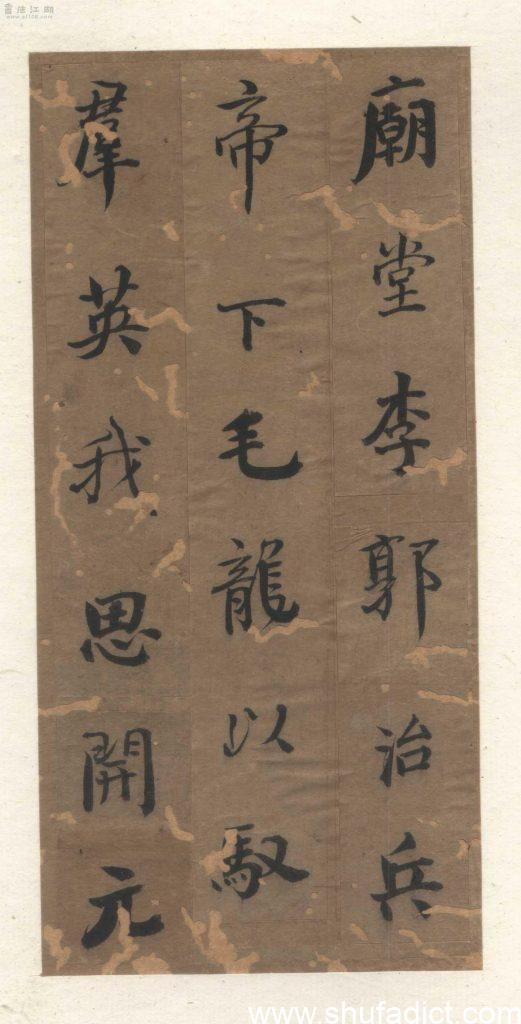 廟堂李郭治兵
帝下毛龍以馭
羣英我思開元
書法江湖
www.shufadict.com